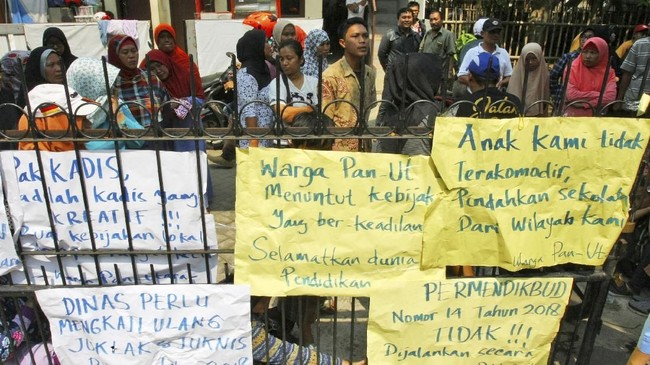 Pak KADIS,
adlah kadic yang
KREATIF !!!
Buat kebijakan lokal
Warga PAN-UT
Menuntut kebijak
Yang ber-keadilan
Selamatkan dunia
Pendidikan
Anak Kami tidak
Terakomodir,
Pindahkan sekolah
Dari Wilayah Kami
Warga Pan-Ut
DINAS PERLU
MENGKAJI ULANG
JUKLAK & JUKNIS
2018
PERMENDIKBUD
Nomor 14 Tahun 2018
TIDAK !!!
Dijalankan secara